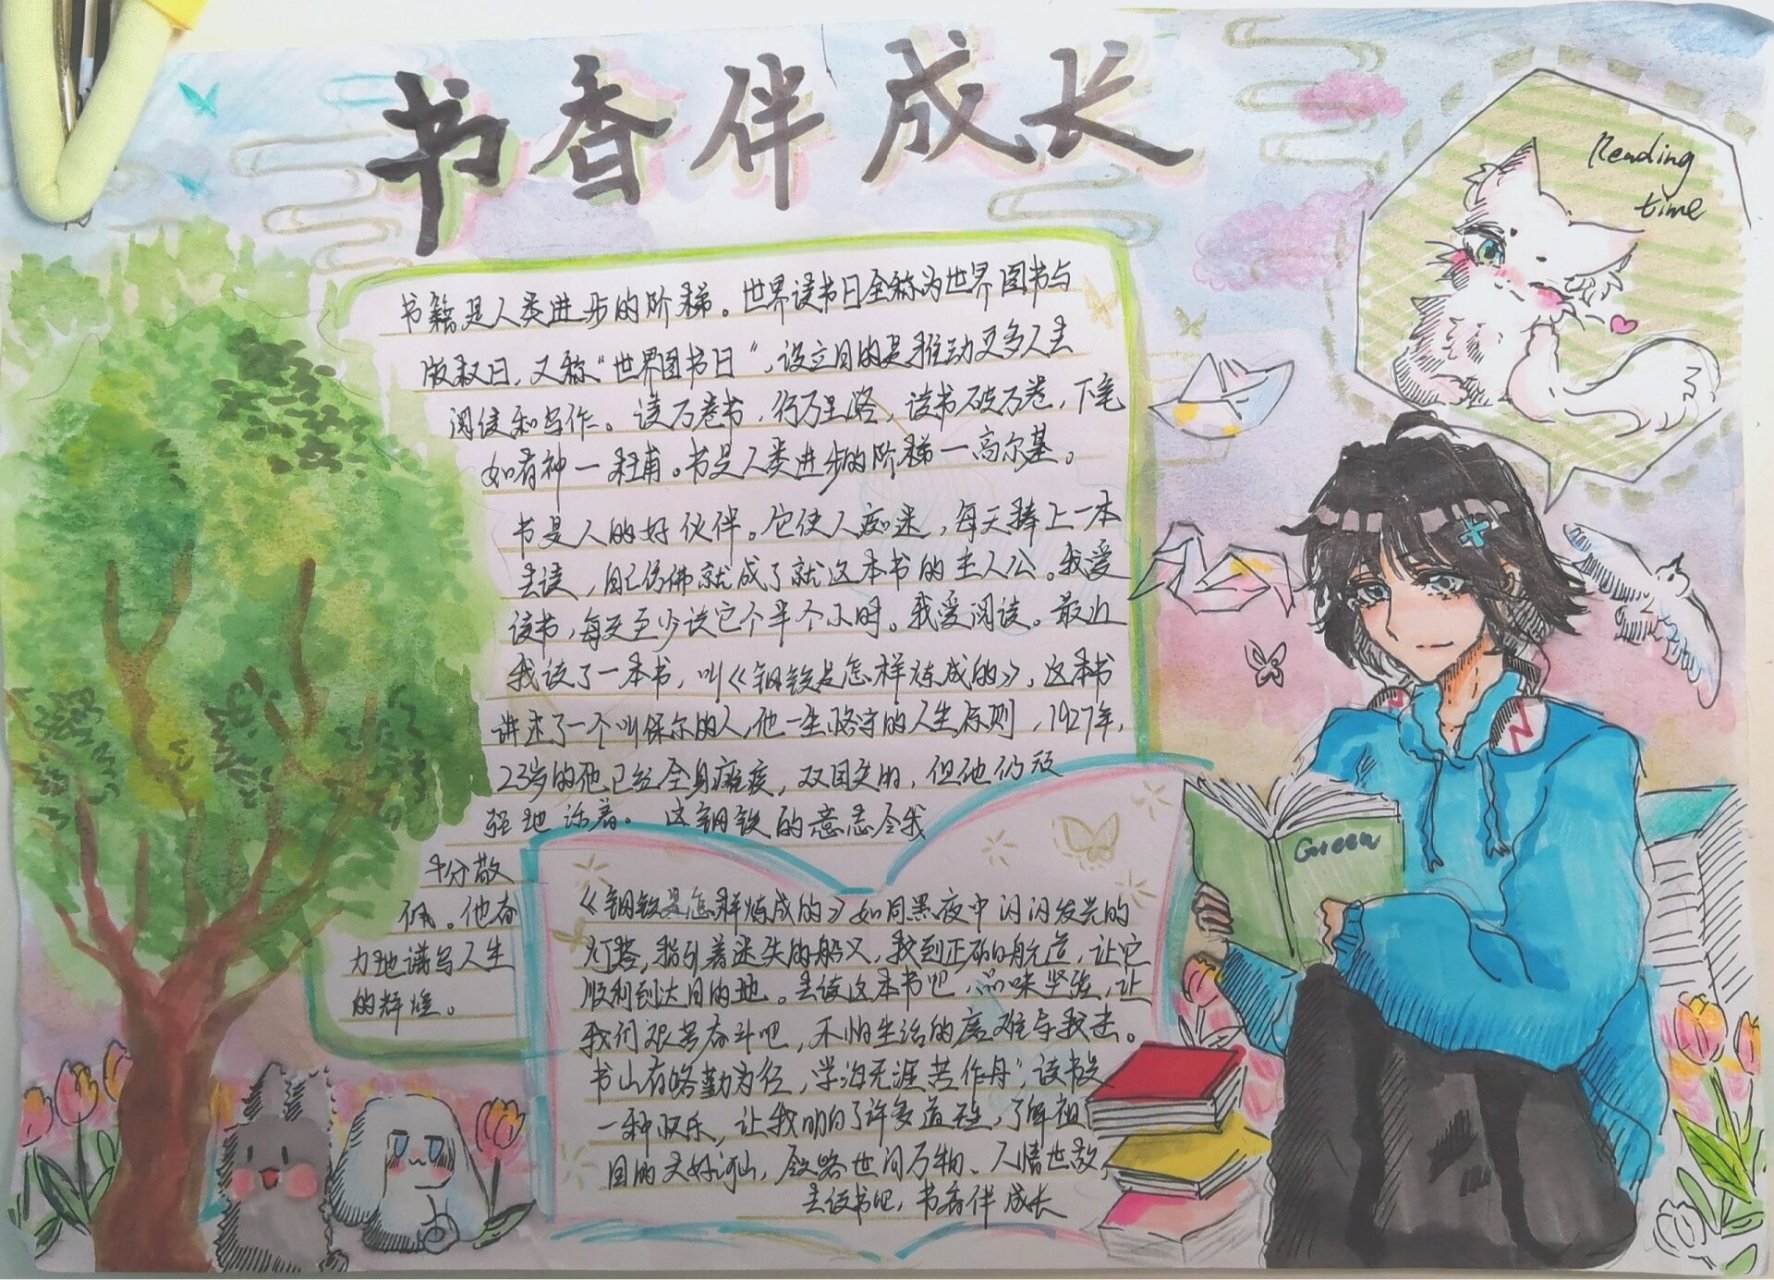 书香伴成长
Reading
time
书籍是人类进步的阶梯。世界读书日全称为世界图书与
版权日，又称“世界图书日”，设立目的是推动更多人去
阅读和写作。读万卷书，行万里路，读书破万卷，下笔
如有神一杜甫。书是人类进步的阶梯一高尔基。
书是人的好伙伴。它使人痴迷，每天捧上一本
去读，自己仿佛就成了就这本书的主人公。我爱
读书，每天至少读它个半个小时。我爱阅读。最近
我读了一本书，叫《钢铁是怎样炼成的》，这本书
讲述了一个叫保尔的人，他一生恪守的人生原则，1927年，
23岁的他已经全身瘫痪，双目失明，但他仍顽
强地活着。这钢铁的意志令我
十分敬
佩。他奋
力地谱写人生
的辉煌。
Green
《钢铁是怎样炼成的》如同黑夜中闪闪发光的
灯塔，指引着迷失的船只，找到正确的航道，让它
顺利到达目的地。去读这本书吧，品味坚强，让
我们艰苦奋斗吧，不怕生活的磨难与我去。
书山有路勤为径，学海无涯苦作舟”，读书是
一种快乐，让我明白了许多道理，了解祖
国的大好河山，领略世间万物、人情世故，
去读书吧，书香伴成长